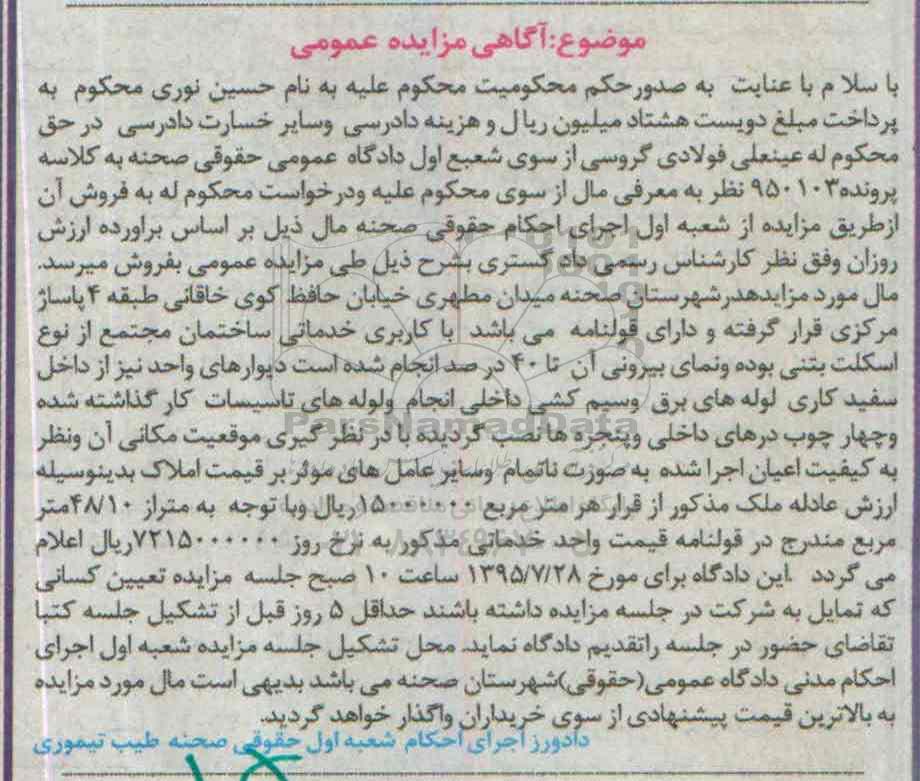 موضوع:آگاهی مزایده عمومی
با سلا م با عنایت به صدورحکم محکومیت محکوم علیه به نام حسین نوری محکوم به
پرداخت مبلغ دویست هشتاد میلیون ریا ل و هزینه دادرسی وسایر خسارت دادرسی در حق
محکوم له عینعلی فولادی گروسی از سوی شعبع اول دادگاه عمومی حقوقی صحنه به کلاسه
پرونده۹۵۰۱۰۳ نظر به معرفی مال از سوی محکوم علیه ودرخواست محکوم له به فروش آن
ازطریق مزایده از شعبه اول اجرای احکام حقوقی صحنه مال ذیل بر اساس براورده ارزش
روزان وفق نظر کارشناس رسمی داد گستری بشرح ذیل طی مزایده عمومی بفروش میرسد.
مال مورد مزایدهدرشهرستان صحنه میدان مطهری خیابان حافظ کوی خاقانی طبقه ۴پاساژ
مرکزی قرار گرفته و دارای قولنامه می باشد با کاربری خدماتی ساختمان مجتمع از نوع
اسکلت بتنی بوده ونمای بیرونی آن تا ۴۰ در صد انجام شده است دیوارهای واحد نیز از داخل
سفید کاری لوله های برق وسیم کشی داخلی انجام ولوله های تاسیسات کار گذاشته شده
وچهار چوب درهای داخلی وپنجره ها نصب گردیده با در نظر گیری موقعیت مکانی آن ونظر
به کیفیت اعیان اجرا شده به صورت ناتمام وسایر عامل های موثر بر قیمت املاک بدینوسیله
ارزش عادله ملک مذکور از قرار هر متر مربع ۱۵۰۰۰۰۰۰ریال وبا توجه به متراز ۴۸/۱۰متر
مربع مندرج در قولنامه قیمت واحد خدماتی مذکور به نرخ روز ۷۲۱۵۰۰۰۰۰۰ریال اعلام
می گردد .این دادگاه برای مورخ ۱۳۹۵/۷/۲۸ ساعت ۱۰ صبح جلسه مزایده تعیین کسانی
که تمایل به شرکت در جلسه مزایده داشته باشند حداقل ۵ روز قبل از تشکیل جلسه کتبا
تقاضای حضور در جلسه راتقدیم دادگاه نماید. محل تشکیل جلسه مزایده شعبه اول اجرای
احکام مدنی دادگاه عمومی(حقوقی)شهرستان صحنه می باشد بدیهی است مال مورد مزایده
به بالاترین قیمت پیشنهادی از سوی خریداران واگذار خواهد گردید.
دادورز اجرای احکام شعبه اول حقوقی صحنه طیب تیموری
ParsNamadData